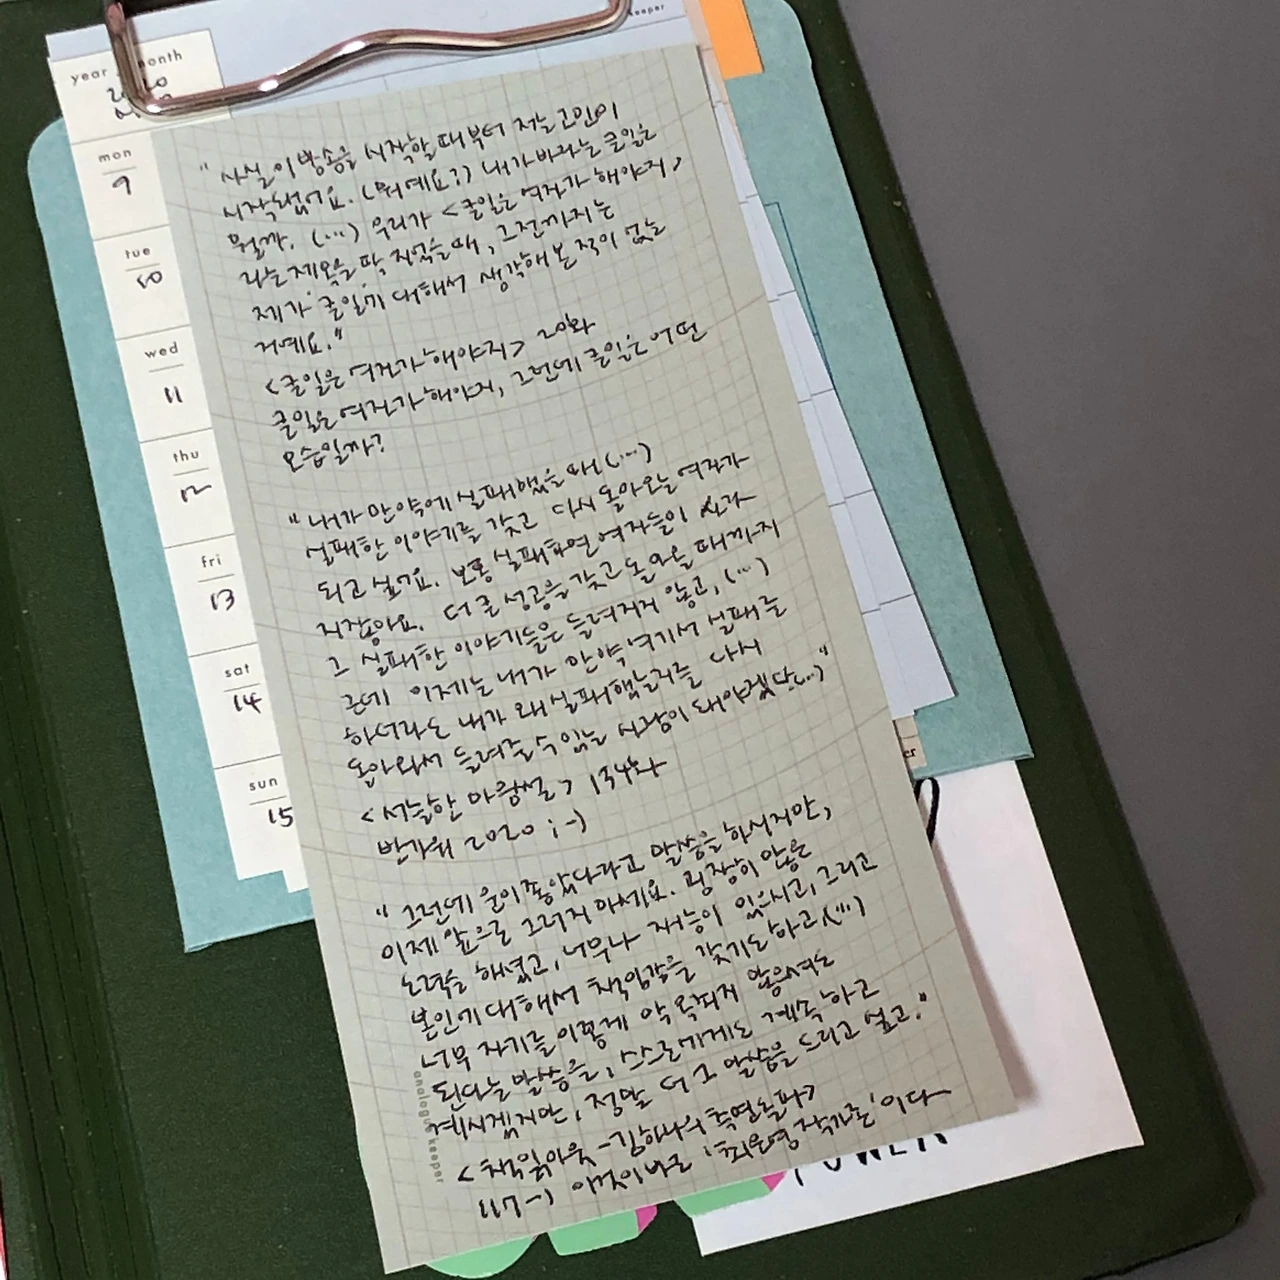 year month
2020
mon
9
tue
10
wed
11
thu
12
fri
13
sat
14
sun
15
keeper
"사실 이 방송을 시작할 때부터 저는 고민이
시작됐어요. (뭐예요?) 내가 바라는 큰일은
뭘까. (…) 우리가 <큰일은 여자가 해야지>
라는 제목을 딱 지었을 때, 그전까지는
제가 큰일에 대해서 생각해 본 적이 없는
거예요."
<큰일은 여자가 해야지> 20화
큰일은 여자가 해야지, 그런데 큰일은 어떤
모습일까?
"내가 만약에 실패했을 때 (…)
실패한 이야기를 갖고 다시 돌아오는 여자가
되고 싶어요. 보통 실패하면 여자들이 사라
지잖아요. 더 큰 성공을 갖고 돌아올 때까지
그 실패한 이야기들은 들려지지 않고, (…)
근데 이제는 내가 만약 여기서 실패를
하더라도 내가 왜 실패했는지를 다시
돌아와서 들려줄 수 있는 사람이 돼야겠단(…)"
<서늘한 마음썰> 134화
반가워 2020 ;-)
"그런데 운이 좋았다라고 말씀을 하시지만,
이제 앞으로 그러지 마세요. 굉장히 많은
노력을 해셨고, 너무나 재능이 있으시고, 그리고
본인에 대해서 책임감을 갖기도 하고(…)
너무 자기를 이렇게 압박하지 않으셔도
된다는 말씀을, 스스로에게도 계속 하고
계시겠지만, 정말 더 그 말씀을 드리고 싶고."
<책읽아웃-김하나의 측면돌파>
117-1 이것이 바로 '최은영 작가론'이다
analogue keeper
er
POWER